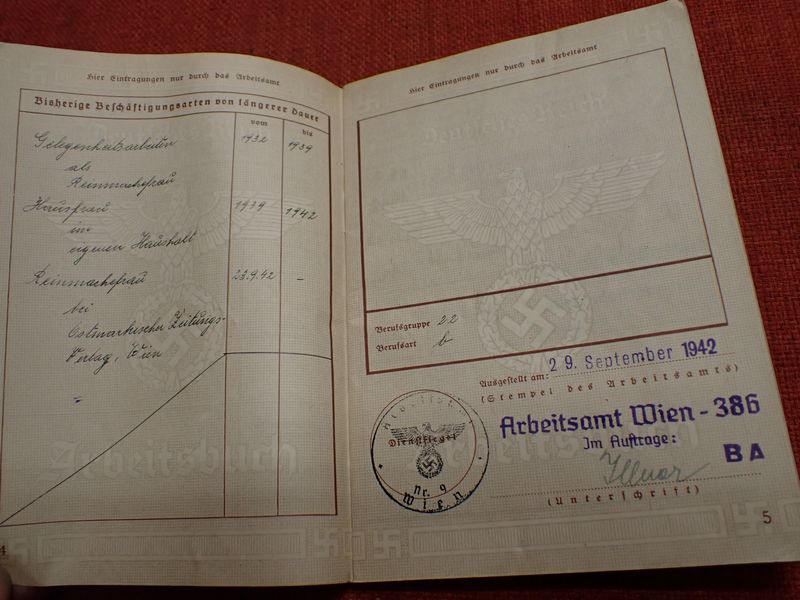 Hier Eintragungen nur durch das Arbeitsamt
Bisherige Beschäftigungsarten von längerer Dauer
vom
bis
Gelegenheitsarbeiten 1932 1939
als
Reinmachefrau
Hausfrau 1939 1942
im
eigenen Haushalt
Reinmachefrau 23.9.42 –
bei
Ostmärkischer Zeitungs-
Verlag, Wien
Arbeitsbuch
4
Hier Eintragungen nur durch das Arbeitsamt
Berufsgruppe 22
Berufsart b
Ausgestellt am: 29. September 1942
(Stempel des Arbeitsamts)
Arbeitsamt Wien - 386
Im Auftrage:
BA
(Unterschrift)
Arbeitsamt
Dienstsiegel
Nr. 9
Wien
5